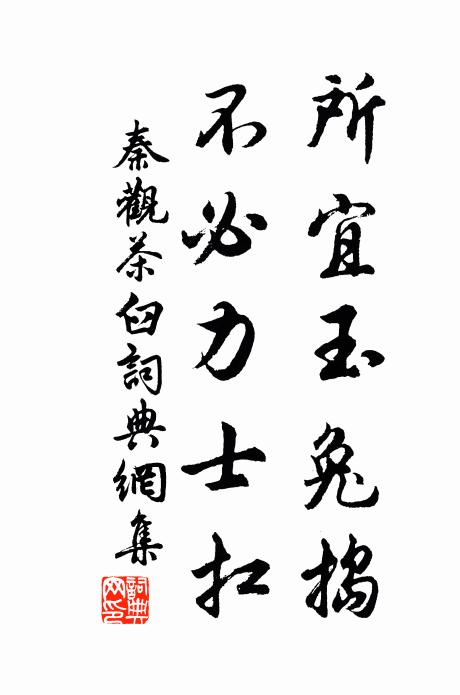 所宜玉兔搗
不必力士扛
秦觀茶臼詞典網集
詞典网印